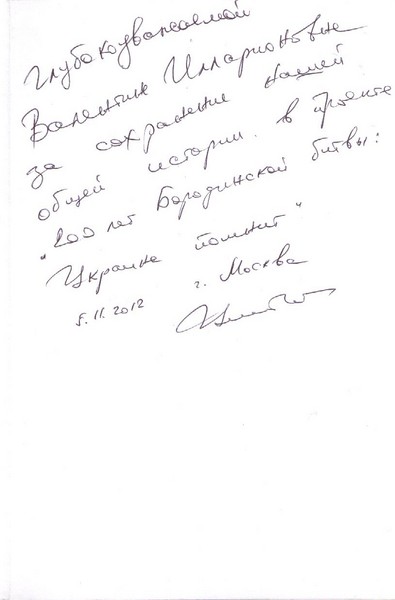 Глубокоуважаемой
Валентине Илларионовне
за сохранение нашей
общей истории в проекте
"200 лет Бородинской битвы:
Украина помнит"
5.11.2012 г. Москва